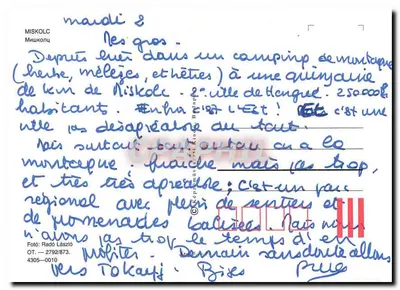 mardi 8
MISKOLC
Мишкольц
Mes gros.
Depuis hier dans un camping de montagne
(herbe, mélèzes, et hêtres) à une quinzaine
de km de Miskolc. 2e ville de Hongrie. 250000
habitants. Enfin c'est l'Est ! Et c'est une
ville pas désagréable du tout.
Mais surtout tout autour on a la
montagne, fraîche mais pas trop,
et très très agréable ; C'est un parc
régional avec plein de sentiers et
de promenades balisées. Mais nous
n'avons pas trop le temps d'en
profiter. Demain sans doute allons
vers Tokaj. Bises
Fotó: Radó László
OT. — 2792/873.
4305—0010